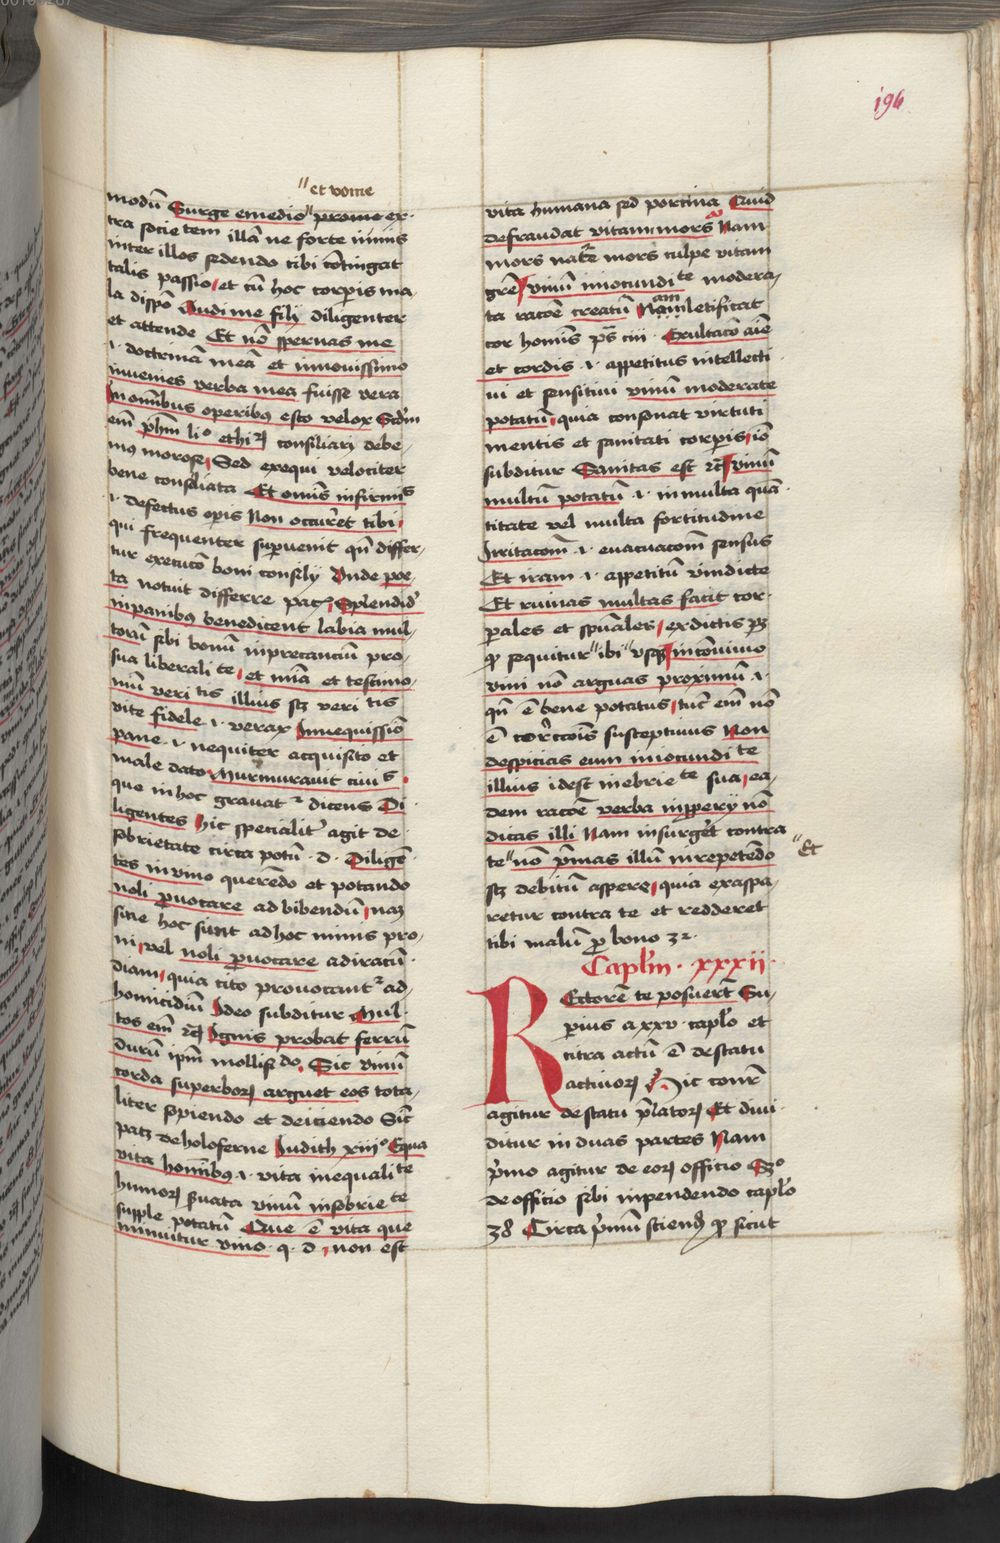 196
et vome
modū Surge emedio" prome ex-
tra societem illā ne forte nimis
inter illos sedendo tibi cōtingat
talis passio et cū hoc corpis ma-
la dispō Audi me fili diligenter
et attende Et nō spernas me
.i. doctrinā meā et innouissimo
inuenies verba mea fuisse vera
Inomībus operibus esto velox Scdm
em phm li° ethicorum consiliari debe-
mus morose Sed exequi velociter
bene consiliata Et omīs infirmis
.i. defectus opis Non occurret tibi
qui frequenter supuenit qn differ-
tur execucō boni consilij Unde poe-
ta notuit differre Splendid'
inpanibus benedicent labia mul-
torū sibi bonū inprecanciū pro
sua liberalite et mīa et testimo-
niū veritis illius scz veritis
vite fidele .i. verax Innequissiō
pane .i. nequiter acquisito et
male dato Murmurauit ciuis
que inhoc grauatr dicens Di-
ligentes hic specialitr agit de
sobrietate circa potū .d. Diligē-
tes inuino querēdo et potando
noli puocare ad bibendū naz
siue hoc sunt adhoc nimis pro-
ni vel noli puocare adiracū-
diam quia cito prouocantr ad
homicidiū Ideo subditur Mul-
tos em rc Ignis probat ferrū
durū ipm mollificdo Sic vinū
corda superborum arguet eos tota-
liter sopiendo et deiciendo Sic
patz deholoferne Judith xiii° Equa
vita homībus .i. vita inequalite
humorum suata vinū insobriete
supple potatū Que ē vita que
minuitur vino q. d. non est
vita humana sed porcina Quid
defraudat vitam mors Nam
mors nature mors culpe vitam
gre vinū iniocundite modera-
ta racōe creatū Nam letificat
cor homīs ps ciii Exultacō aīe
et cordis .i. appetitus intellecti-
ui et sensitiui vinū moderate
potatū quia consonat virtuti
mentis et sanitati corpis iō
subditur Sanitas est rc vinū
multū potatū .i. inmulta quā-
titate vel multa fortitudine
Irritacom .i. euacuacom sensus
Et iram .i. appetitū vindicte
Et ruinas multas facit cor-
pales et spūales exdictis pz
qp sequitur "ibi" usqz Inconuiuio
vini nō arguas proximū .i.
qn ē bene potatus tuc em nō
ē corrcois susceptiuus Non
despicias eum iniocundite
illius idest inebriete sua ea-
dem racoe verba inpperij nō
dicas illi Nam insurget contra
te "nō pmas illū inrepetēdo
"Et
scz debitū aspere quia exaspa-
retur contra te et redderet
tibi malū p bono 32.
Caplm . xxxii .
Rectorē te posuert Su-
perius a xxv caplo et
citra actū ē destatu
actiuorum Hic conr
agitur destatu platorum Et diui-
ditur induas partes Nam
pmo agitur de eorum officio Sz°
de officio sibi inpendendo caplo
38 Circa pmū sciend qp sicut